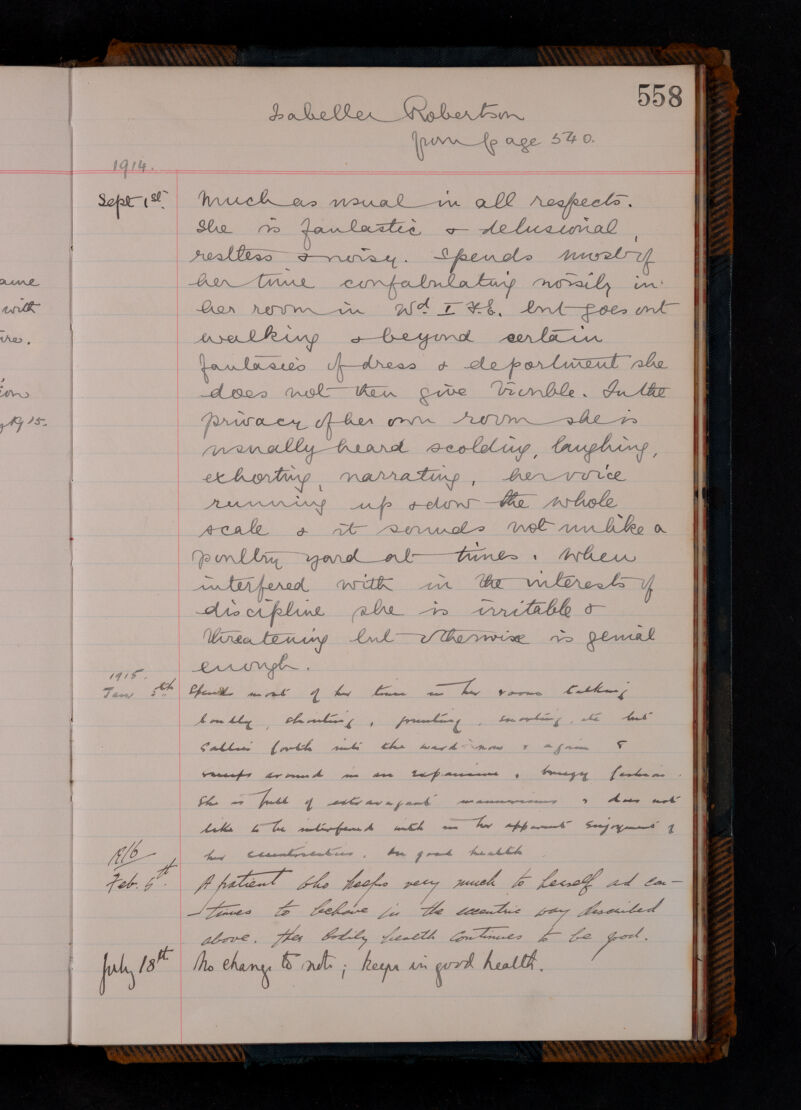 558
Isabella Robertson
from page 540.
1914.
Sept 1st. Much as usual in all respects.
She is fantastic & delusional,
restless & noisy. Spends most of
her time confabulating noisily in
her room in Wd. I F.E. but goes out
walking & beyond certain
fantasies of dress & deportment she
does not then give trouble. In the
privacy of her own room she is
usually heard scolding, laughing,
exhorting, narrating, her voice
running up & down the whole
scale & it sounds not unlike a
poultry yard at times. When
interfered with in the interests of
discipline she is irritable &
threatening but otherwise is genial
enough.
1915.
Jan 5th Spends most of her time in her room talking
loudly, shouting, grunting, snorting, etc but
sallies forth into the ward now & again &
sweeps around in an expansive, breezy fashion.
She is full of extravagant mannerisms & does not
like to be interfered with in her apparent enjoyment of
her eccentricities. In good health.
1916
Feb. 5th. A patient who keeps very much to herself and con-
-tinues to behave in the eccentric way described
above. Her bodily health continues to be good.
July 18th No change to note; keeps in good health.
ame
with
ire.
ion
1915.